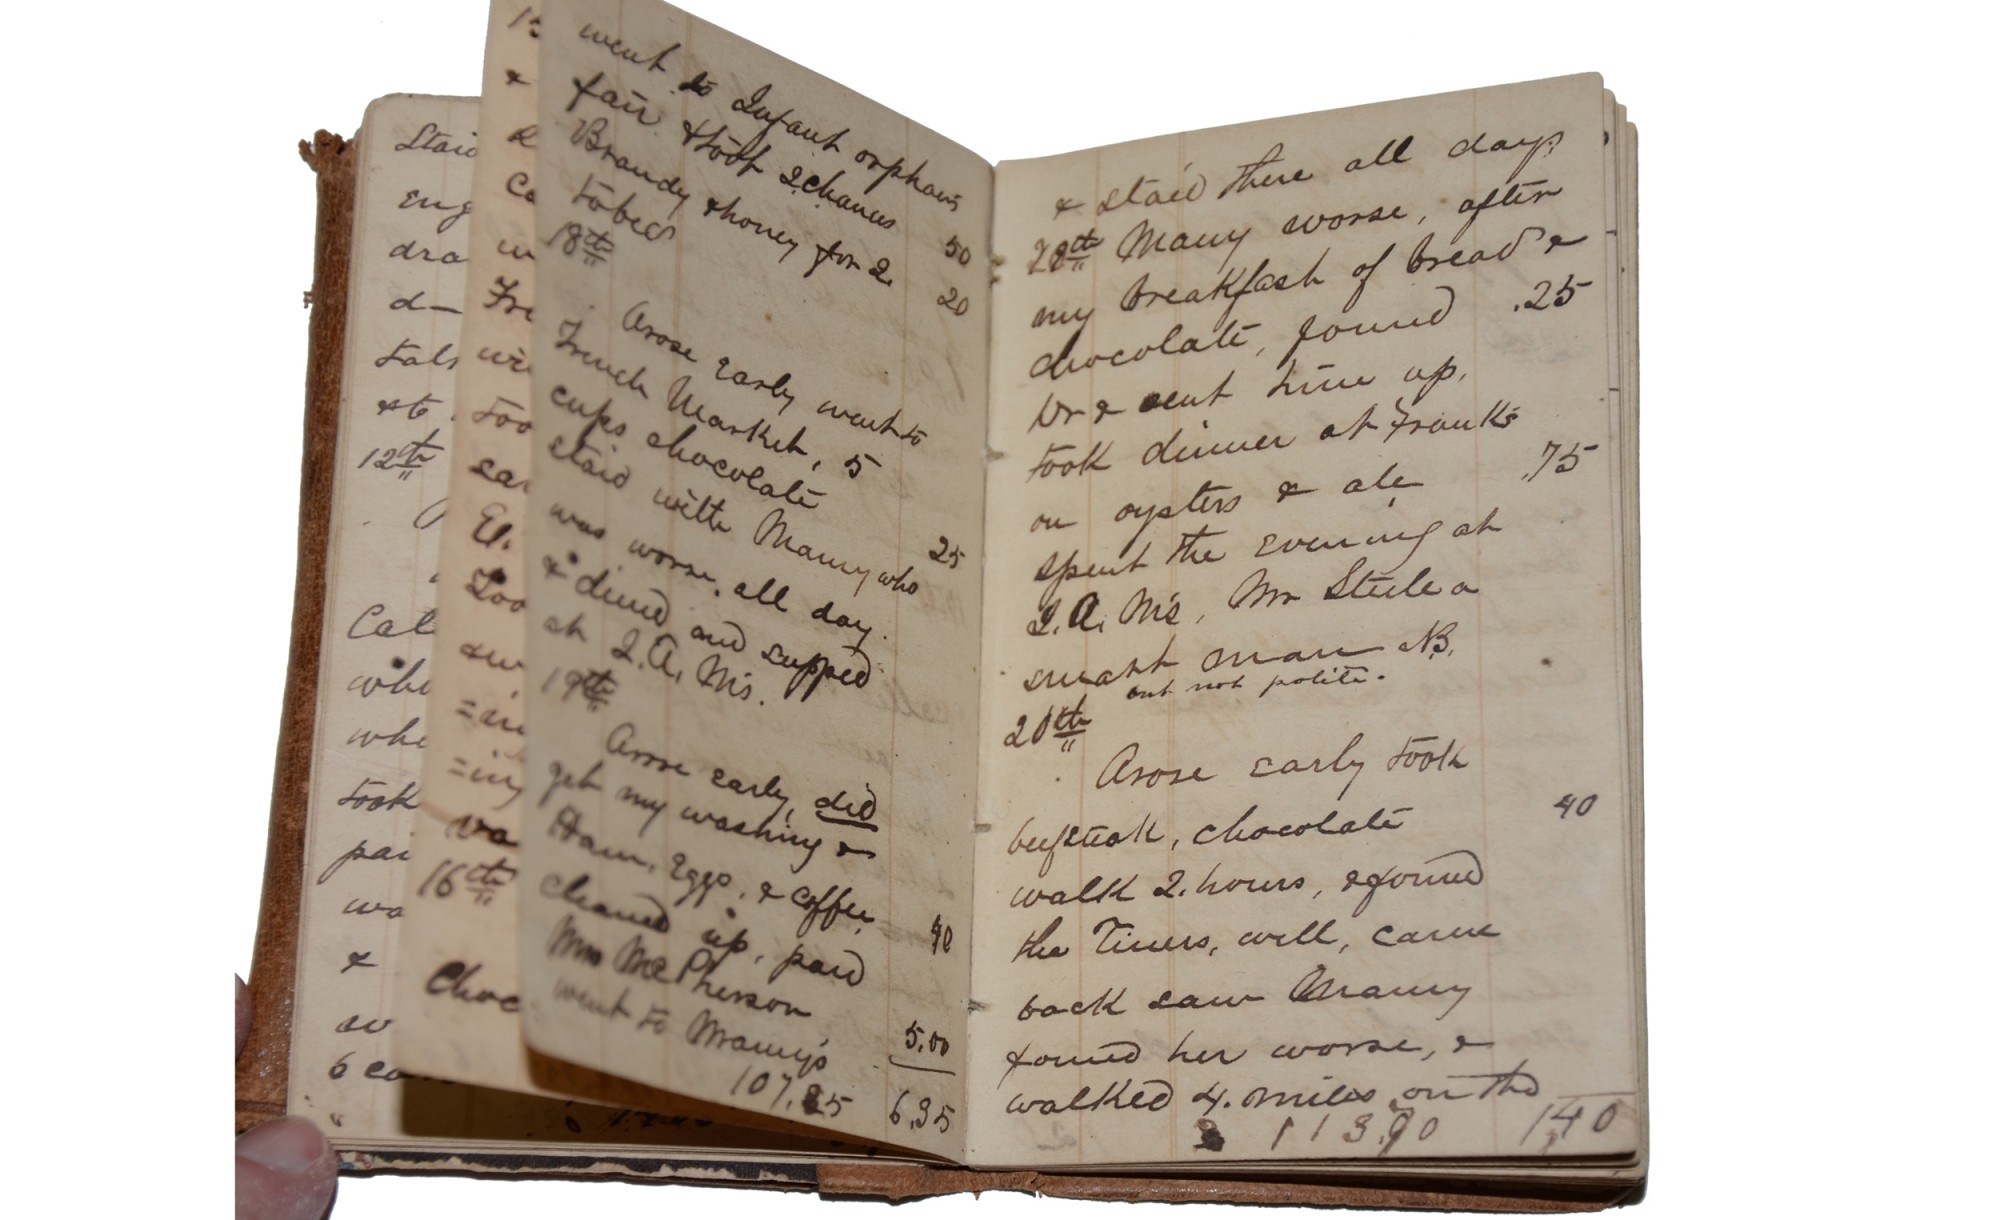 Staid
eng
dra
d—
12th
Cal
whe
whe
took
pai
wa
&
6 co
16th
Choc
went to Infant orphans
fair & took 2 chances 50
Brandy & honey for 2. 20
to bed
18th
Arose early went to
French Market, 5
cups chocolate 25
staid with Mamy who
was worse, all day.
& dined and supped
at J. A. Ms.
19th
Arose early, did
get my washing &
Ham, Eggs, & coffee, 40
cleaned up, paid
Mrs McPherson 5.00
went to Mamy's
107.25 6.35
& staid there all day,
Mamy worse, after
my breakfast of bread &
chocolate, found .25
Dr & sent him up,
took dinner at Frank's
on oysters & ale .75
spent the evening at
J. A. Ms, Mr Steele a
smart man N.B.
but not polite.
20th
Arose early took
beefsteak, chocolate 40
walk 2. hours, & found
the Timers, well, came
back saw Mamy
found her worse, &
walked 4. miles on the
113.90 140